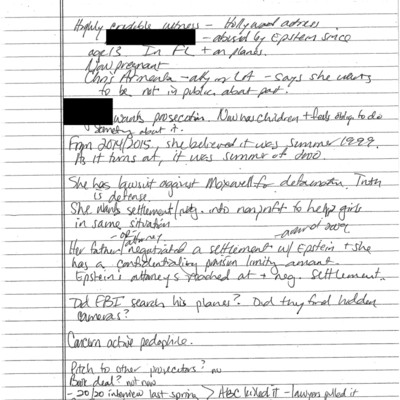 Highly credible witness - Hollywood actress.
- abused by Epstein since
age 13 In FL + on planes.
Now pregnant
Chris Armenta - atty in LA - says she wants
to be not in public about past.
wants prosecution. Now has children + feels oblig to do
something about it.
From 2014/2015, she believed it was summer 1999.
As it turns out, it was summer of 2000.
She has lawsuit against Maxwell for defamation. Truth
is defense.
She wants settlement into nonprofit to help girls
in same situation
- or attorney - end of 2009
Her father negotiated a settlement w/ Epstein + she
has a confidentiality provision limiting amount.
Epstein's attorneys reached out + neg. settlement.
Did FBI search his planes? Did they find hidden
cameras?
Concern active pedophile.
Pitch to other prosecutors? no
Book deal? not now
- 20/20 interview last spring > ABC killed it - lawyers pulled it